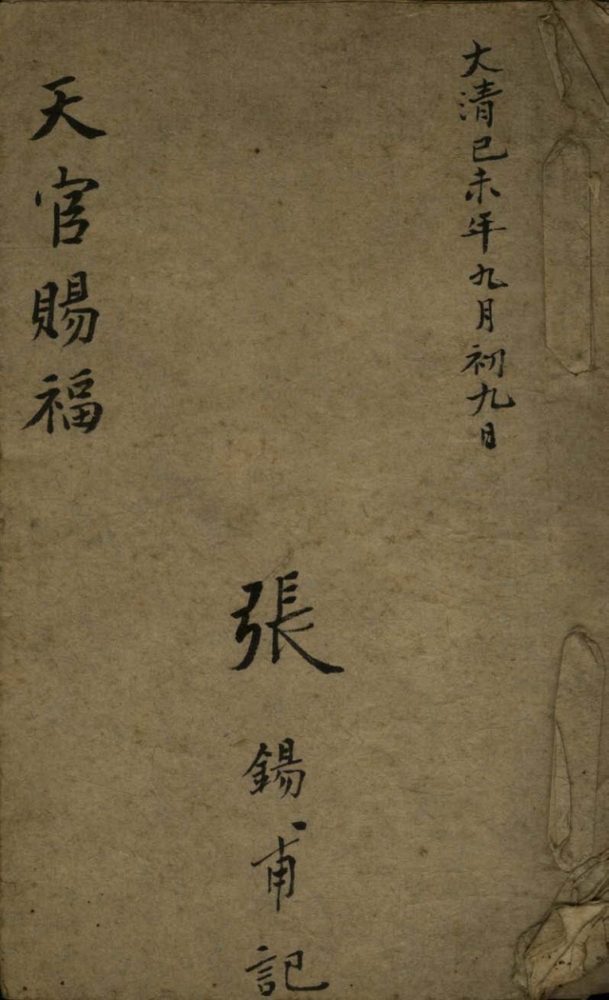 大清已未年九月初九日
張錫甫記
天官賜福